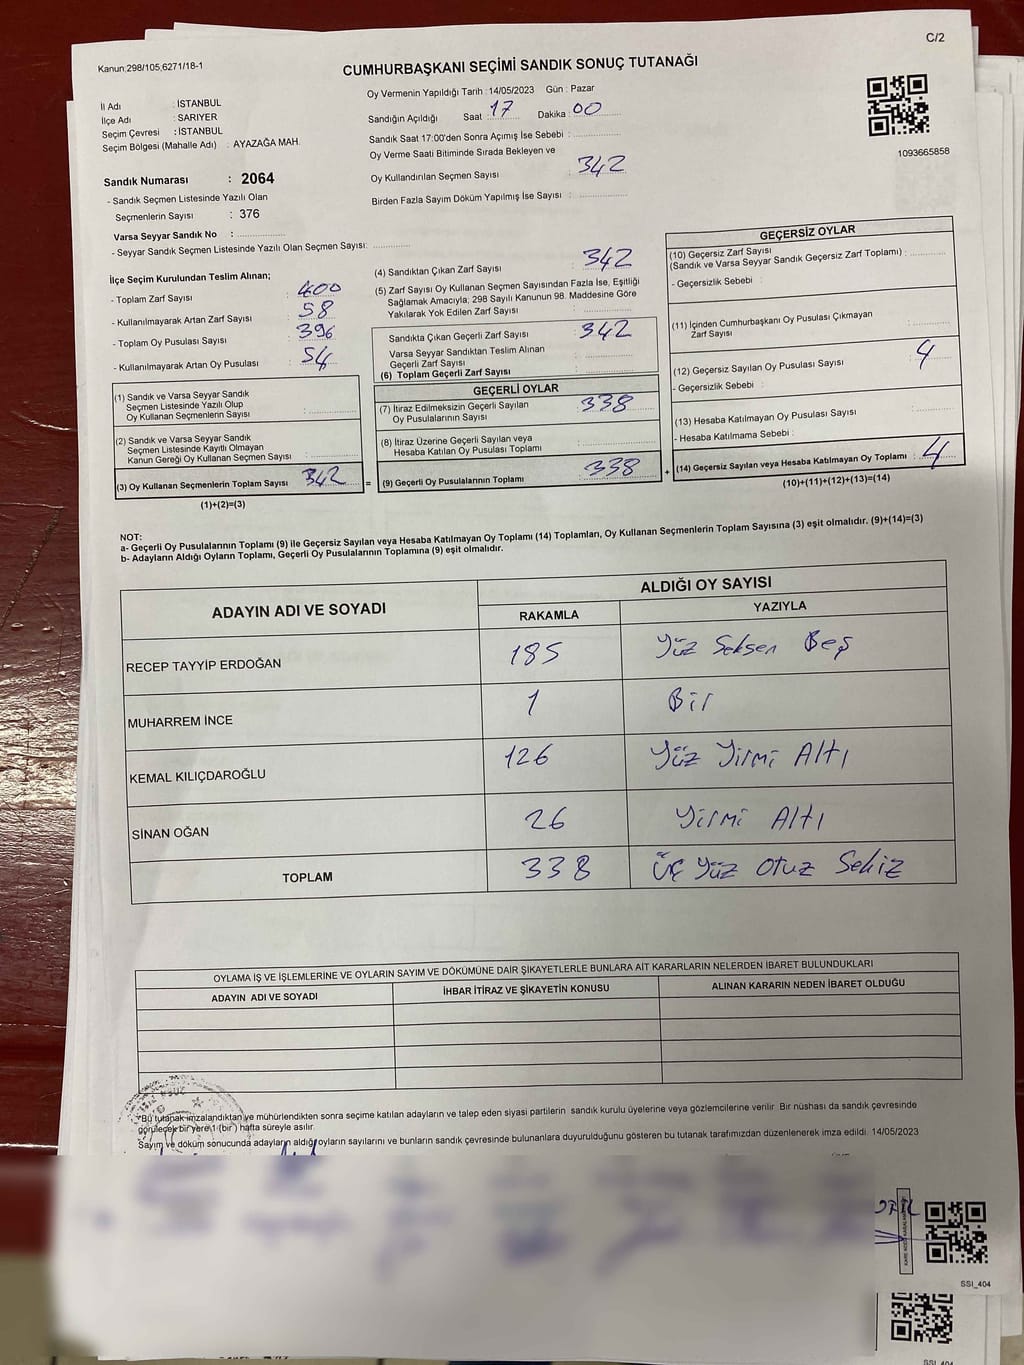 C/2
Kanun:298/105,6271/18-1
CUMHURBAŞKANI SEÇİMİ SANDIK SONUÇ TUTANAĞI
İl Adı : İSTANBUL
İlçe Adı : SARIYER
Seçim Çevresi : İSTANBUL
Seçim Bölgesi (Mahalle Adı) : AYAZAĞA MAH.
Sandık Numarası : 2064
- Sandık Seçmen Listesinde Yazılı Olan
Seçmenlerin Sayısı : 376
Varsa Seyyar Sandık No :
- Seyyar Sandık Seçmen Listesinde Yazılı Olan Seçmen Sayısı:
Oy Vermenin Yapıldığı Tarih : 14/05/2023 Gün : Pazar
Sandığın Açıldığı Saat : 17 Dakika : 00
Sandık Saat 17:00'den Sonra Açımış İse Sebebi :
Oy Verme Saati Bitiminde Sırada Bekleyen ve
Oy Kullandırılan Seçmen Sayısı : 342
Birden Fazla Sayım Döküm Yapılmış İse Sayısı :
1093665858
İlçe Seçim Kurulundan Teslim Alınan;
- Toplam Zarf Sayısı : 400
- Kullanılmayarak Artan Zarf Sayısı : 58
- Toplam Oy Pusulası Sayısı : 396
- Kullanılmayarak Artan Oy Pusulası : 54
(1) Sandık ve Varsa Seyyar Sandık
Seçmen Listesinde Yazılı Olup
Oy Kullanan Seçmenlerin Sayısı :
(2) Sandık ve Varsa Seyyar Sandık
Seçmen Listesinde Kayıtlı Olmayan
Kanun Gereği Oy Kullanan Seçmen Sayısı :
(3) Oy Kullanan Seçmenlerin Toplam Sayısı : 342 =
(1)+(2)=(3)
(4) Sandıktan Çıkan Zarf Sayısı : 342
(5) Zarf Sayısı Oy Kullanan Seçmen Sayısından Fazla İse, Eşitliği
Sağlamak Amacıyla; 298 Sayılı Kanunun 98. Maddesine Göre
Yakılarak Yok Edilen Zarf Sayısı :
Sandıkta Çıkan Geçerli Zarf Sayısı : 342
Varsa Seyyar Sandıktan Teslim Alınan
Geçerli Zarf Sayısı :
(6) Toplam Geçerli Zarf Sayısı :
GEÇERLİ OYLAR
(7) İtiraz Edilmeksizin Geçerli Sayılan
Oy Pusulalarının Sayısı : 338
(8) İtiraz Üzerine Geçerli Sayılan veya
Hesaba Katılan Oy Pusulası Toplamı :
(9) Geçerli Oy Pusulalarının Toplamı : 338 +
GEÇERSİZ OYLAR
(10) Geçersiz Zarf Sayısı
(Sandık ve Varsa Seyyar Sandık Geçersiz Zarf Toplamı) :
- Geçersizlik Sebebi :
(11) İçinden Cumhurbaşkanı Oy Pusulası Çıkmayan
Zarf Sayısı :
(12) Geçersiz Sayılan Oy Pusulası Sayısı : 4
- Geçersizlik Sebebi :
(13) Hesaba Katılmayan Oy Pusulası Sayısı :
- Hesaba Katılmama Sebebi :
(14) Geçersiz Sayılan veya Hesaba Katılmayan Oy Toplamı : 4
(10)+(11)+(12)+(13)=(14)
NOT:
a- Geçerli Oy Pusulalarının Toplamı (9) ile Geçersiz Sayılan veya Hesaba Katılmayan Oy Toplamı (14) Toplamları, Oy Kullanan Seçmenlerin Toplam Sayısına (3) eşit olmalıdır. (9)+(14)=(3)
b- Adayların Aldığı Oyların Toplamı, Geçerli Oy Pusulalarının Toplamına (9) eşit olmalıdır.
ADAYIN ADI VE SOYADI
ALDIĞI OY SAYISI
RAKAMLA YAZIYLA
RECEP TAYYİP ERDOĞAN 185 Yüz Seksen Beş
MUHARREM İNCE 1 Bir
KEMAL KILIÇDAROĞLU 126 Yüz Yirmi Altı
SİNAN OĞAN 26 Yirmi Altı
TOPLAM 338 Üç Yüz Otuz Sekiz
OYLAMA İŞ VE İŞLEMLERİNE VE OYLARIN SAYIM VE DÖKÜMÜNE DAİR ŞİKAYETLERLE BUNLARA AİT KARARLARIN NELERDEN İBARET BULUNDUKLARI
ADAYIN ADI VE SOYADI İHBAR İTİRAZ VE ŞİKAYETİN KONUSU ALINAN KARARIN NEDEN İBARET OLDUĞU
*Bu tutanak imzalandıktan ve mühürlendikten sonra seçime katılan adayların ve talep eden siyasi partilerin sandık kurulu üyelerine veya gözlemcilerine verilir. Bir nüshası da sandık çevresinde
görülecek bir yere 1 (bir) hafta süreyle asılır.
Sayım ve döküm sonucunda adayların aldığı oyların sayılarını ve bunların sandık çevresinde bulunanlara duyurulduğunu gösteren bu tutanak tarafımızdan düzenlenerek imza edildi. 14/05/2023
SSI_404
SSI_404